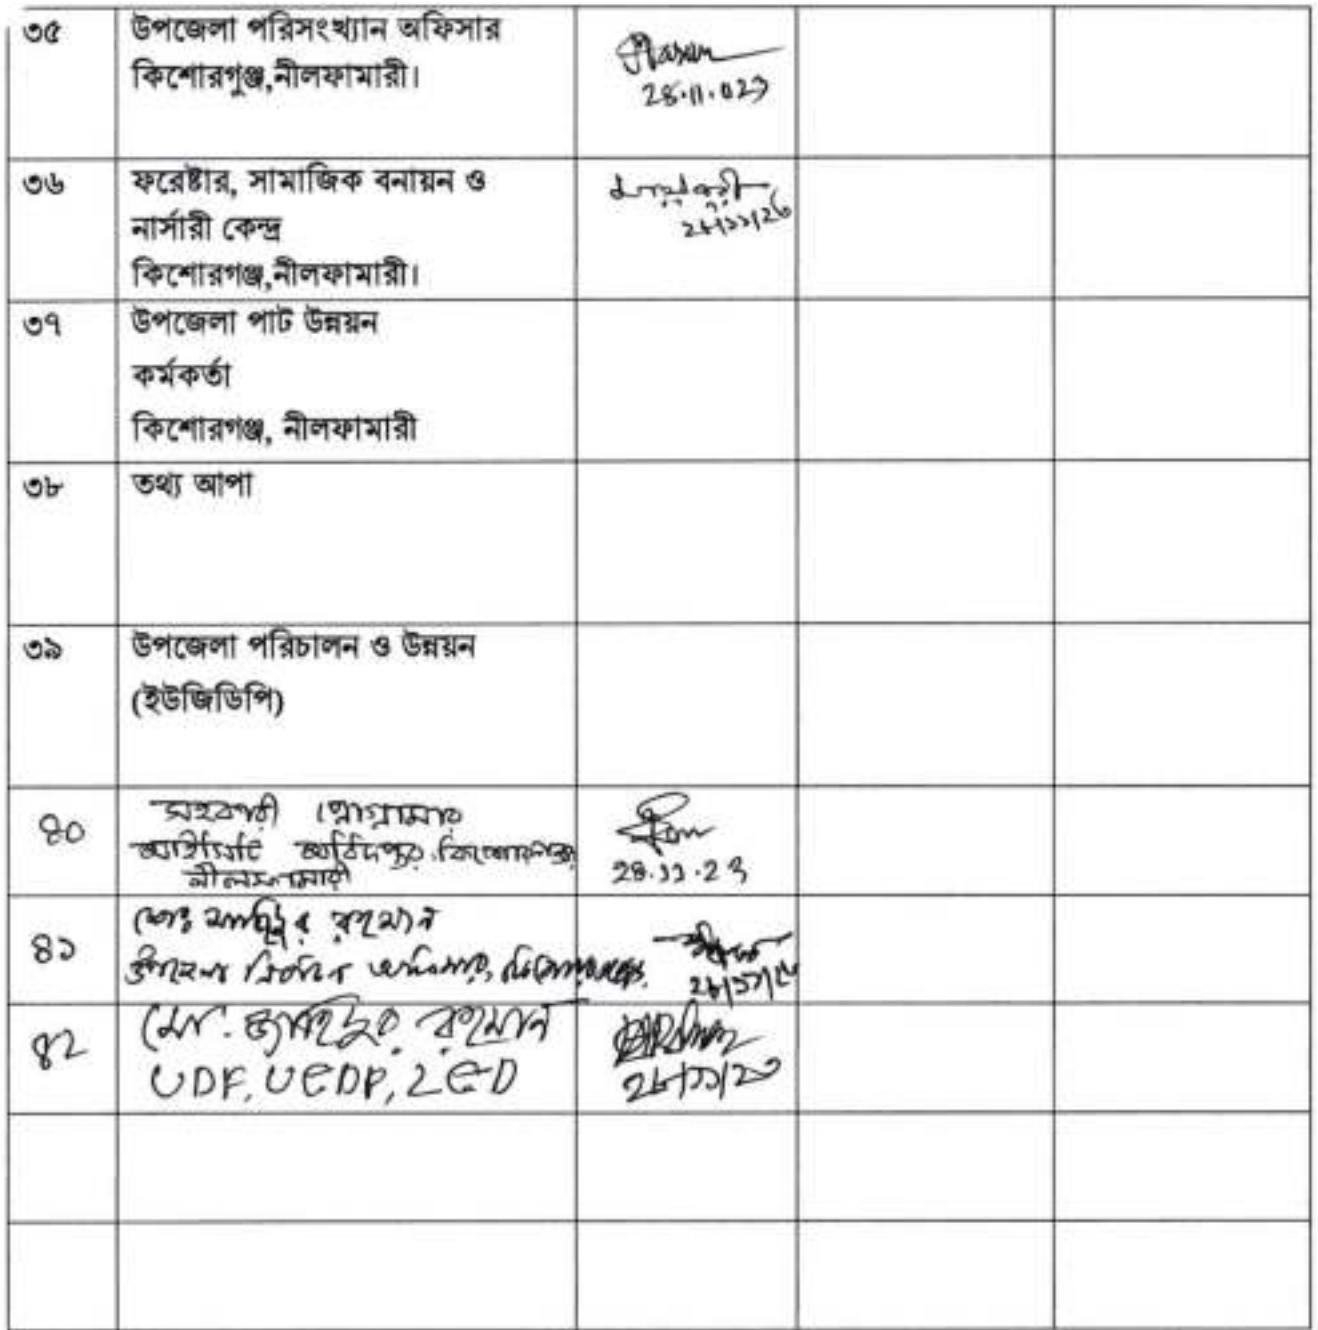 ৩৫
উপজেলা পরিসংখ্যান অফিসার
কিশোরগুঞ্জ,নীলফামারী।
28.11.023
৩৬
ফরেষ্টার, সামাজিক বনায়ন ও
নার্সারী কেন্দ্র
কিশোরগঞ্জ,নীলফামারী।
৩৭
উপজেলা পাট উন্নয়ন
কর্মকর্তা
কিশোরগঞ্জ, নীলফামারী
৩৮
তথ্য আপা
৩৯
উপজেলা পরিচালন ও উন্নয়ন
(ইউজিডিপি)
৪০
সহকারী প্রোগ্রামার
আইসিটি অধিদপ্তর, কিশোরগঞ্জ
নীলফামারী
28.11.23
৪১
মোঃ রহমান
উপজেলা নির্বাচন অফিসার, কিশোরগঞ্জ,
৪২
মো. জাহিদুর রহমান
UDF, UGDP, LGD
২৮/১১/২৩